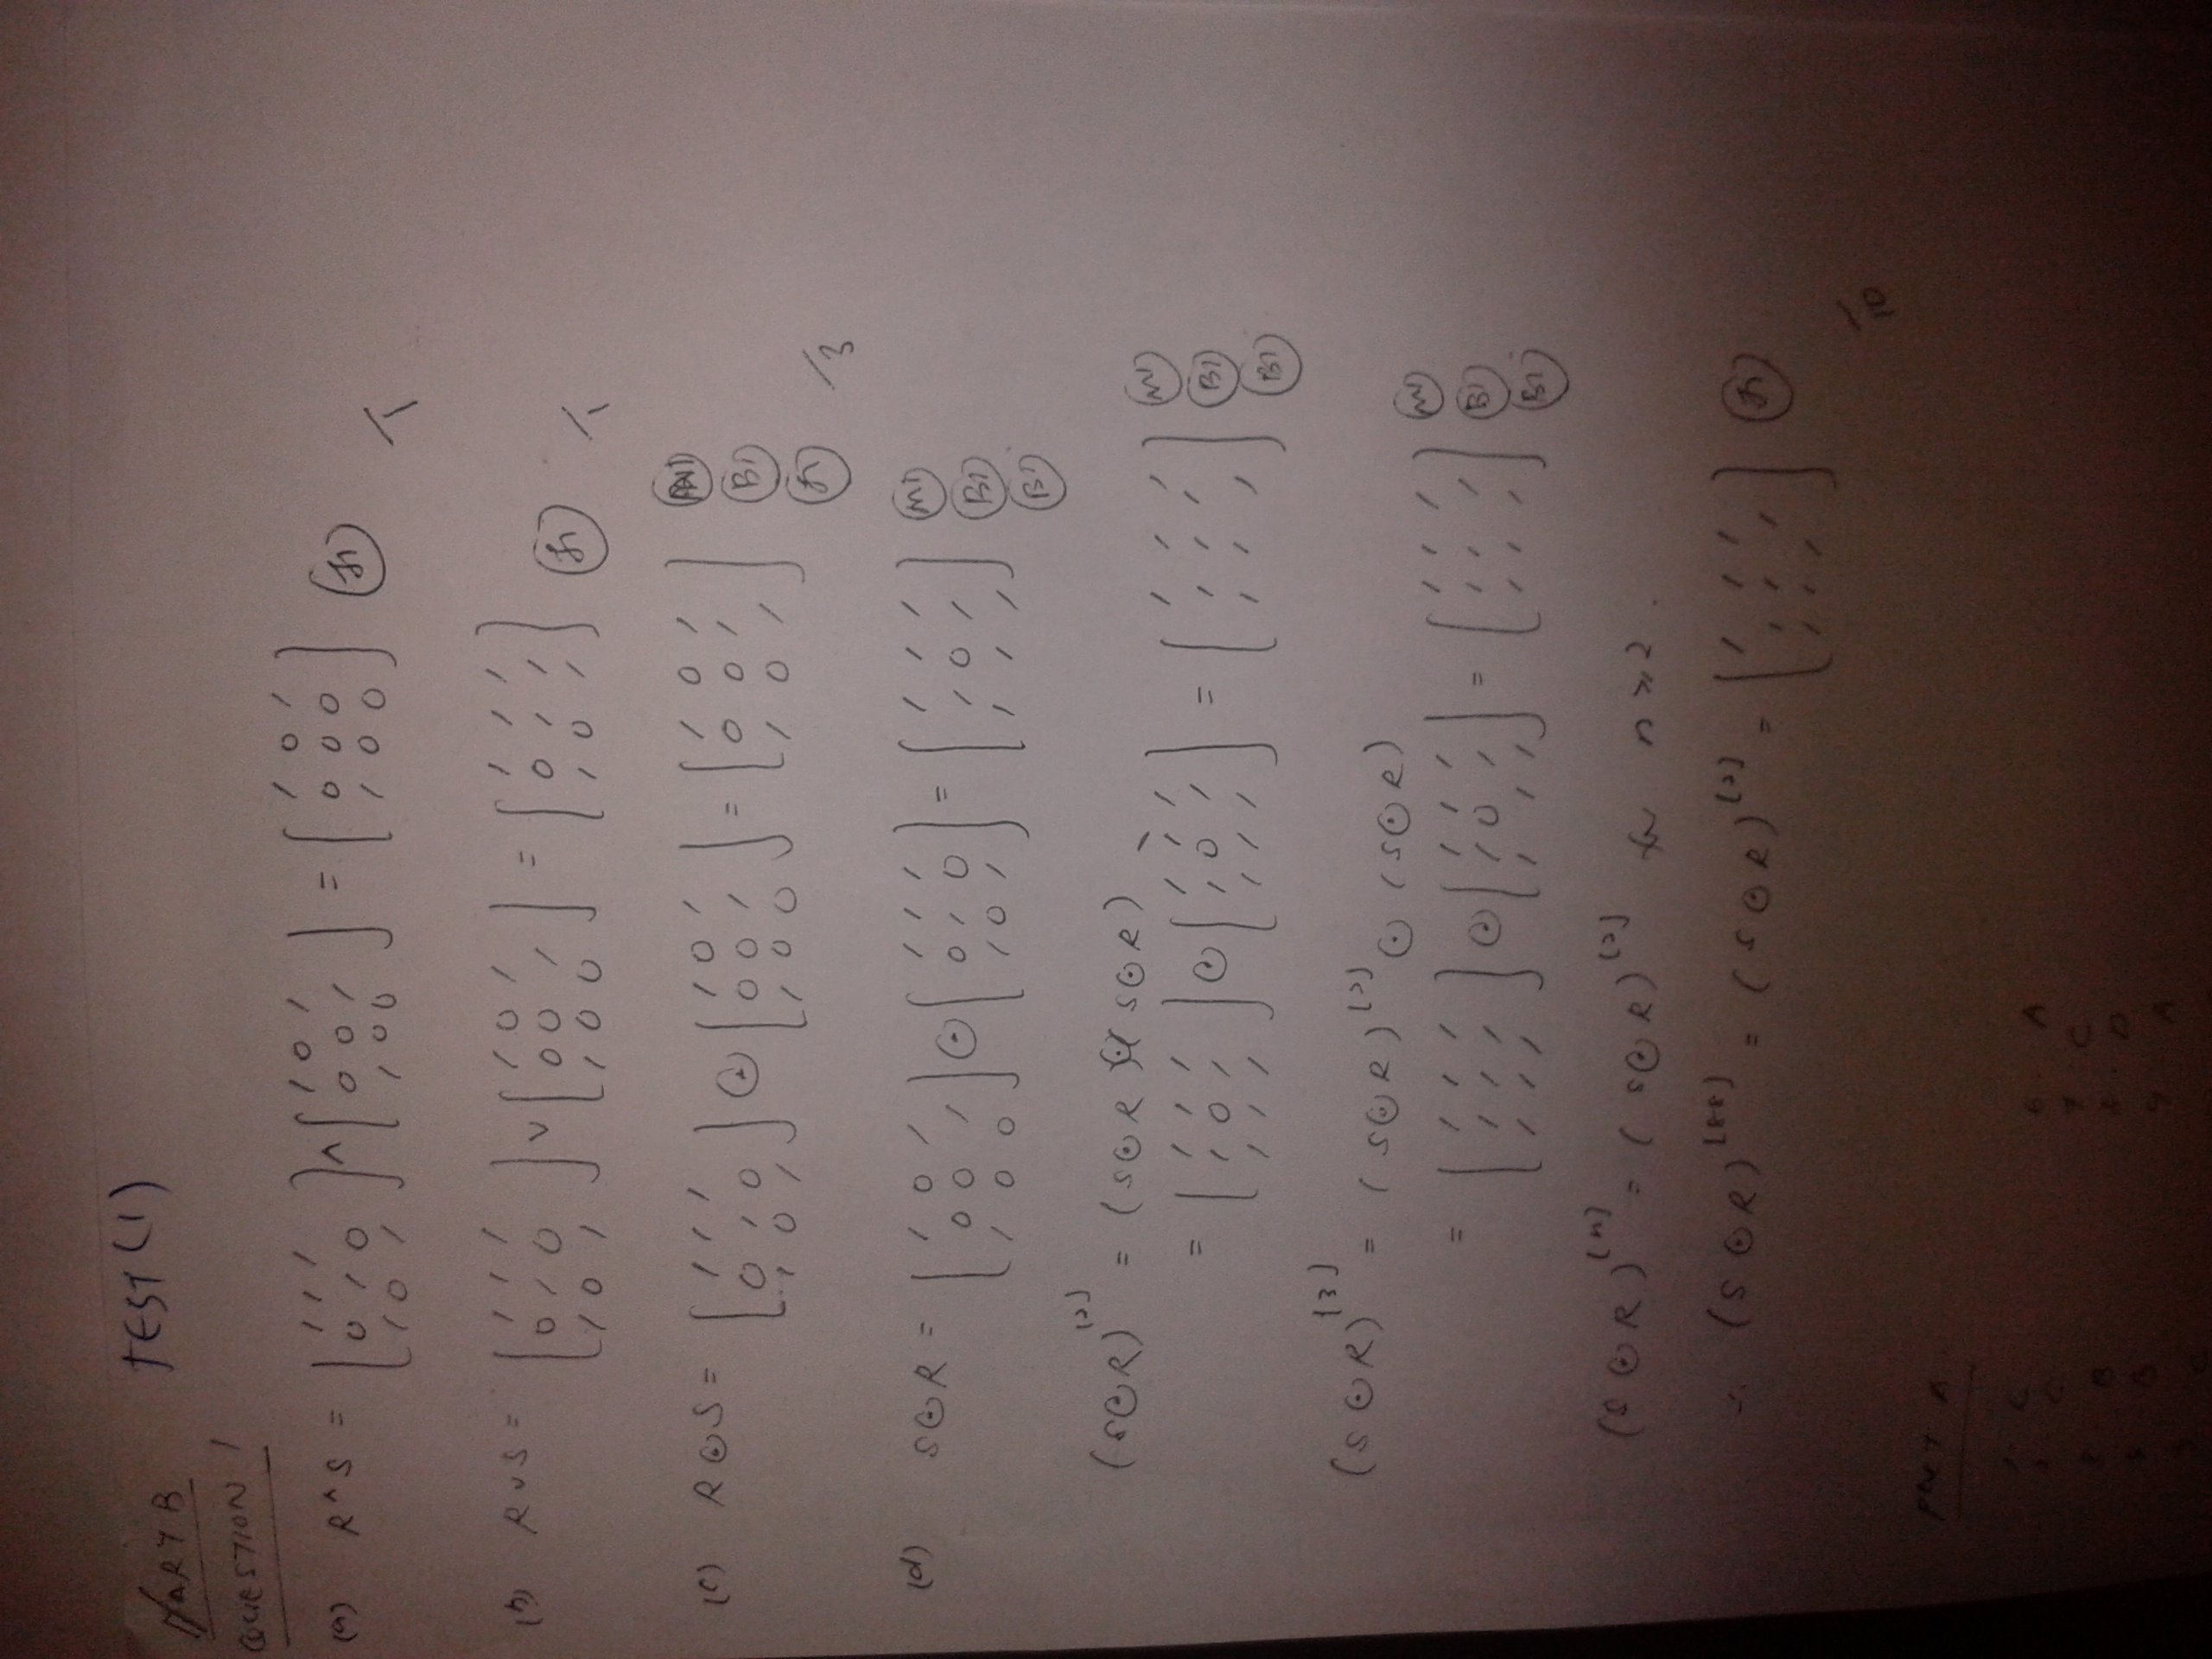 PART B TEST (1)
QUESTION 1
(a) R ^ S = [1 1 1; 0 1 0; 1 0 1] ^ [1 0 1; 0 0 1; 1 0 0] = [1 0 1; 0 0 0; 1 0 0] A1 /1
(b) R v S = [1 1 1; 0 1 0; 1 0 1] v [1 0 1; 0 0 1; 1 0 0] = [1 1 1; 0 1 1; 1 0 1] A1 /1
(c) R ⊙ S = [1 1 1; 0 1 0; 1 0 1] ⊙ [1 0 1; 0 0 1; 1 0 0] = [1 0 1; 0 0 1; 1 0 1] B1 A1 /3
(d) S ⊙ R = [1 0 1; 0 0 1; 1 0 0] ⊙ [1 1 1; 0 1 0; 1 0 1] = [1 1 1; 1 0 1; 1 1 1] M1 B1 B1
(S ⊙ R)^[2] = (S ⊙ R) ⊙ (S ⊙ R)
= [1 1 1; 1 0 1; 1 1 1] ⊙ [1 1 1; 1 0 1; 1 1 1] = [1 1 1; 1 1 1; 1 1 1] M1 B1 B1
(S ⊙ R)^[3] = (S ⊙ R)^[2] ⊙ (S ⊙ R)
= [1 1 1; 1 1 1; 1 1 1] ⊙ [1 1 1; 1 0 1; 1 1 1] = [1 1 1; 1 1 1; 1 1 1] M1 B1 B1
(S ⊙ R)^[n] = (S ⊙ R)^[2] for n ≥ 2 .
∴ (S ⊙ R)^[88] = (S ⊙ R)^[2] = [1 1 1; 1 1 1; 1 1 1] A1
/10
PART A
C
6. A
7 C
B
8. D
9 A
C